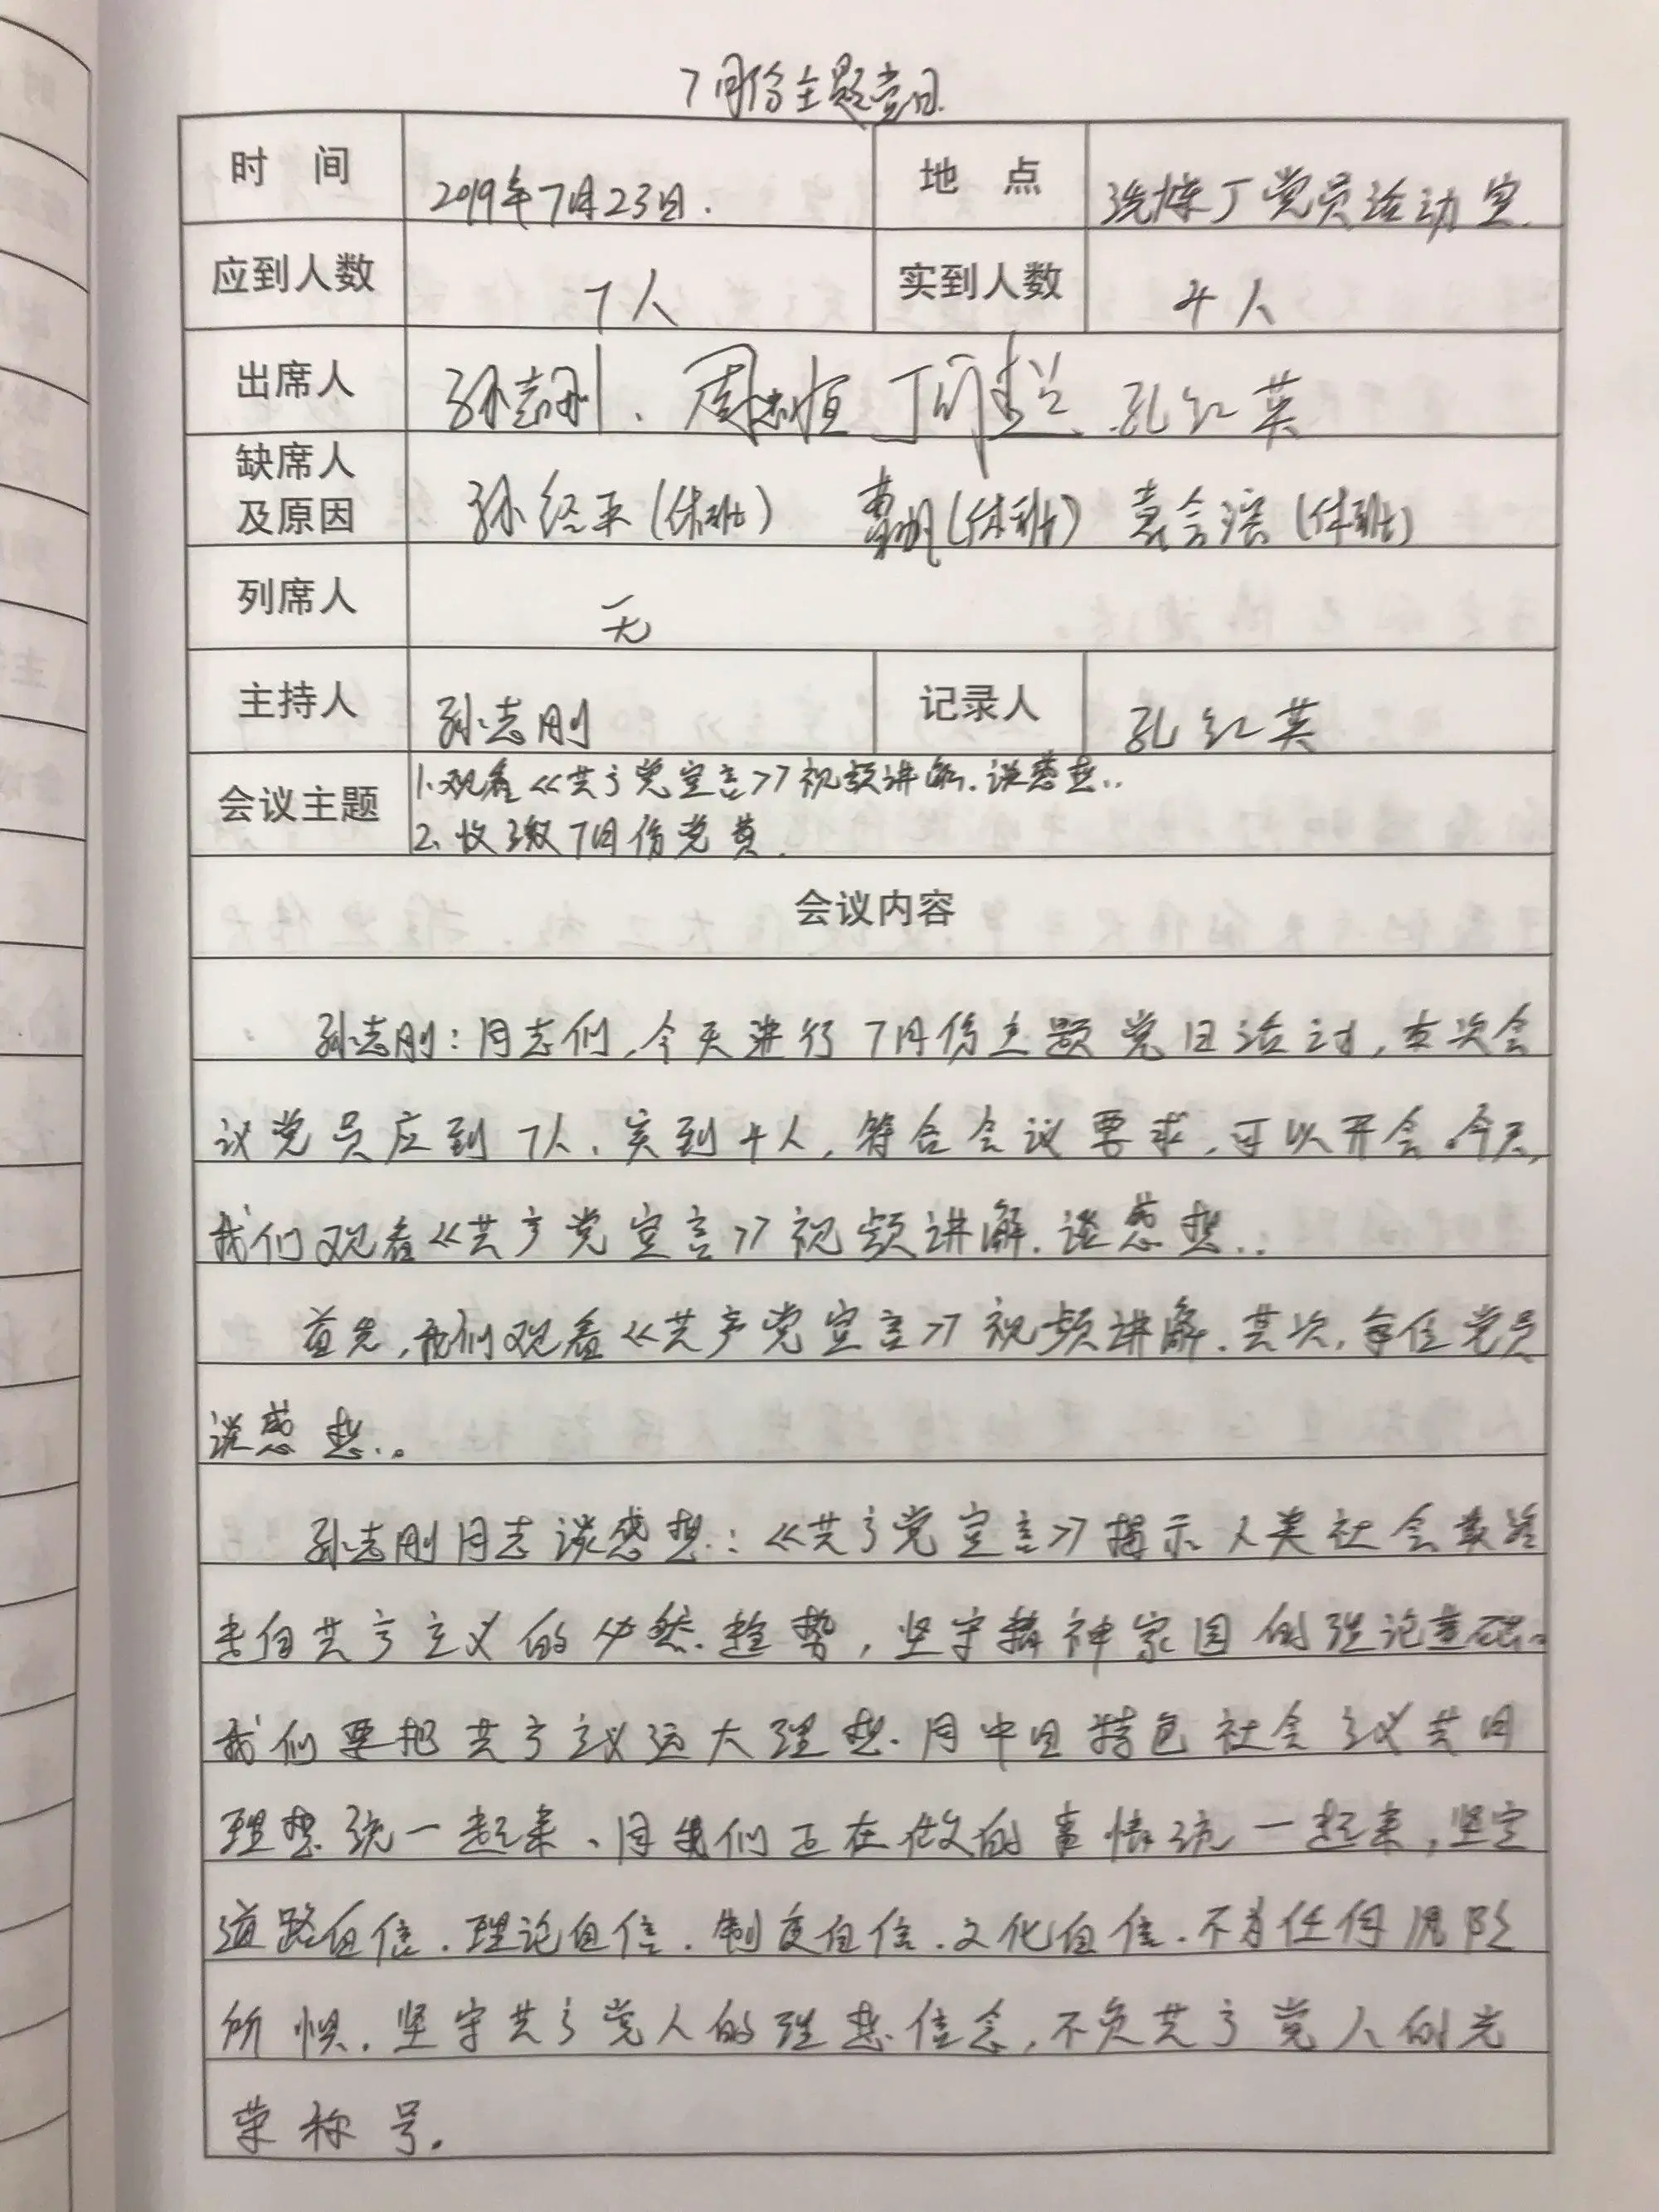 7月份主题党日
时 间 2019年7月23日. 地 点 洗炼厂党员活动室.
应到人数 7人 实到人数 4人
出席人 孙志刚、周志恒 孔红英
缺席人
及原因 孙经平(休班) (休班) 袁会滨(休班)
列席人 无
主持人 孙志刚 记录人 孔红英
会议主题 1.观看《共产党宣言》视频讲解.谈感想..
2、收缴7月份党费.
会议内容
孙志刚:同志们,今天进行7月份主题党日活动,本次会
议党员应到7人、实到4人,符合会议要求,可以开会.今天,
我们观看《共产党宣言》视频讲解.谈感想..
首先,我们观看《共产党宣言》视频讲解.其次,每位党员
谈感想..。
孙志刚同志谈感想:《共产党宣言》揭示人类社会最终
走向共产主义的必然趋势,坚守精神家园的理论基础。
我们要把共产主义远大理想.同中国特色社会主义共同
理想统一起来、同我们正在做的事情统一起来,坚定
道路自信.理论自信.制度自信.文化自信.不为任何风险
所惧.坚守共产党人的理想信念,不负共产党人的光
荣称号.